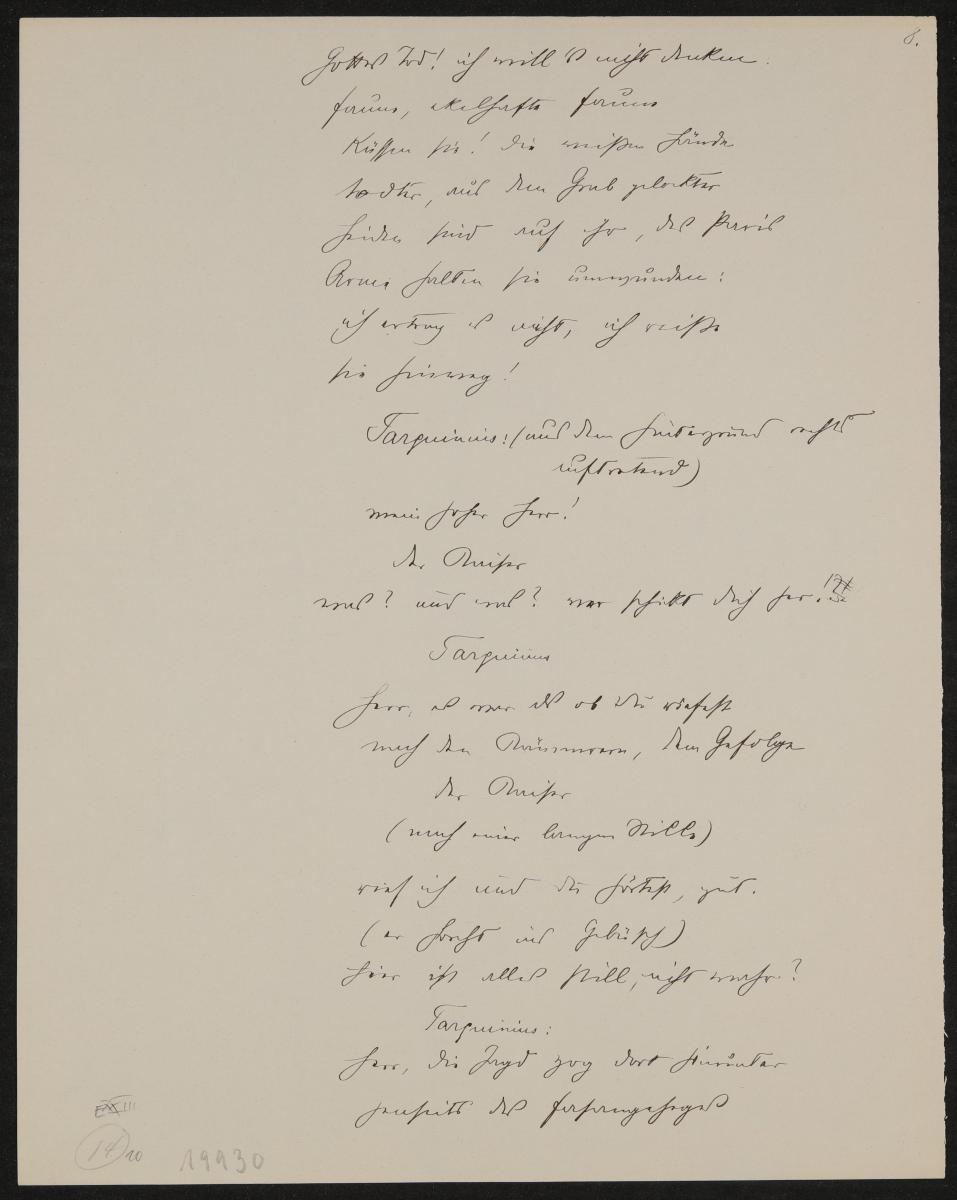 8.
Gottes Tod! ich will's nicht denken.
faune, ekelhafte faune
Küssen sie! die weißen Hände
todter, aus dem Grab gelockter
Heiden sind auf ihr, des Paris
Arme halten sie umwunden:
ich ertrag es nicht, ich reiße
sie hinweg!
Tarquinius: (aus dem Hintergrund rechts
auftretend)
mein hoher Herr!
der Kaiser
was? und was? wer schickt dich her!
Tarquinius
Herr, es war als ob du riefest
nach den Kämmerern, dem Gefolge
der Kaiser
(nach einer langen Stille)
rief ich und du hörtest, gut.
(er horcht ins Gebüsch)
hier ist alles still, nicht wahr?
Tarquinius:
Herr, die Jagd zog dort hinunter
jenseits des fasangeheges
III
14 20
19930